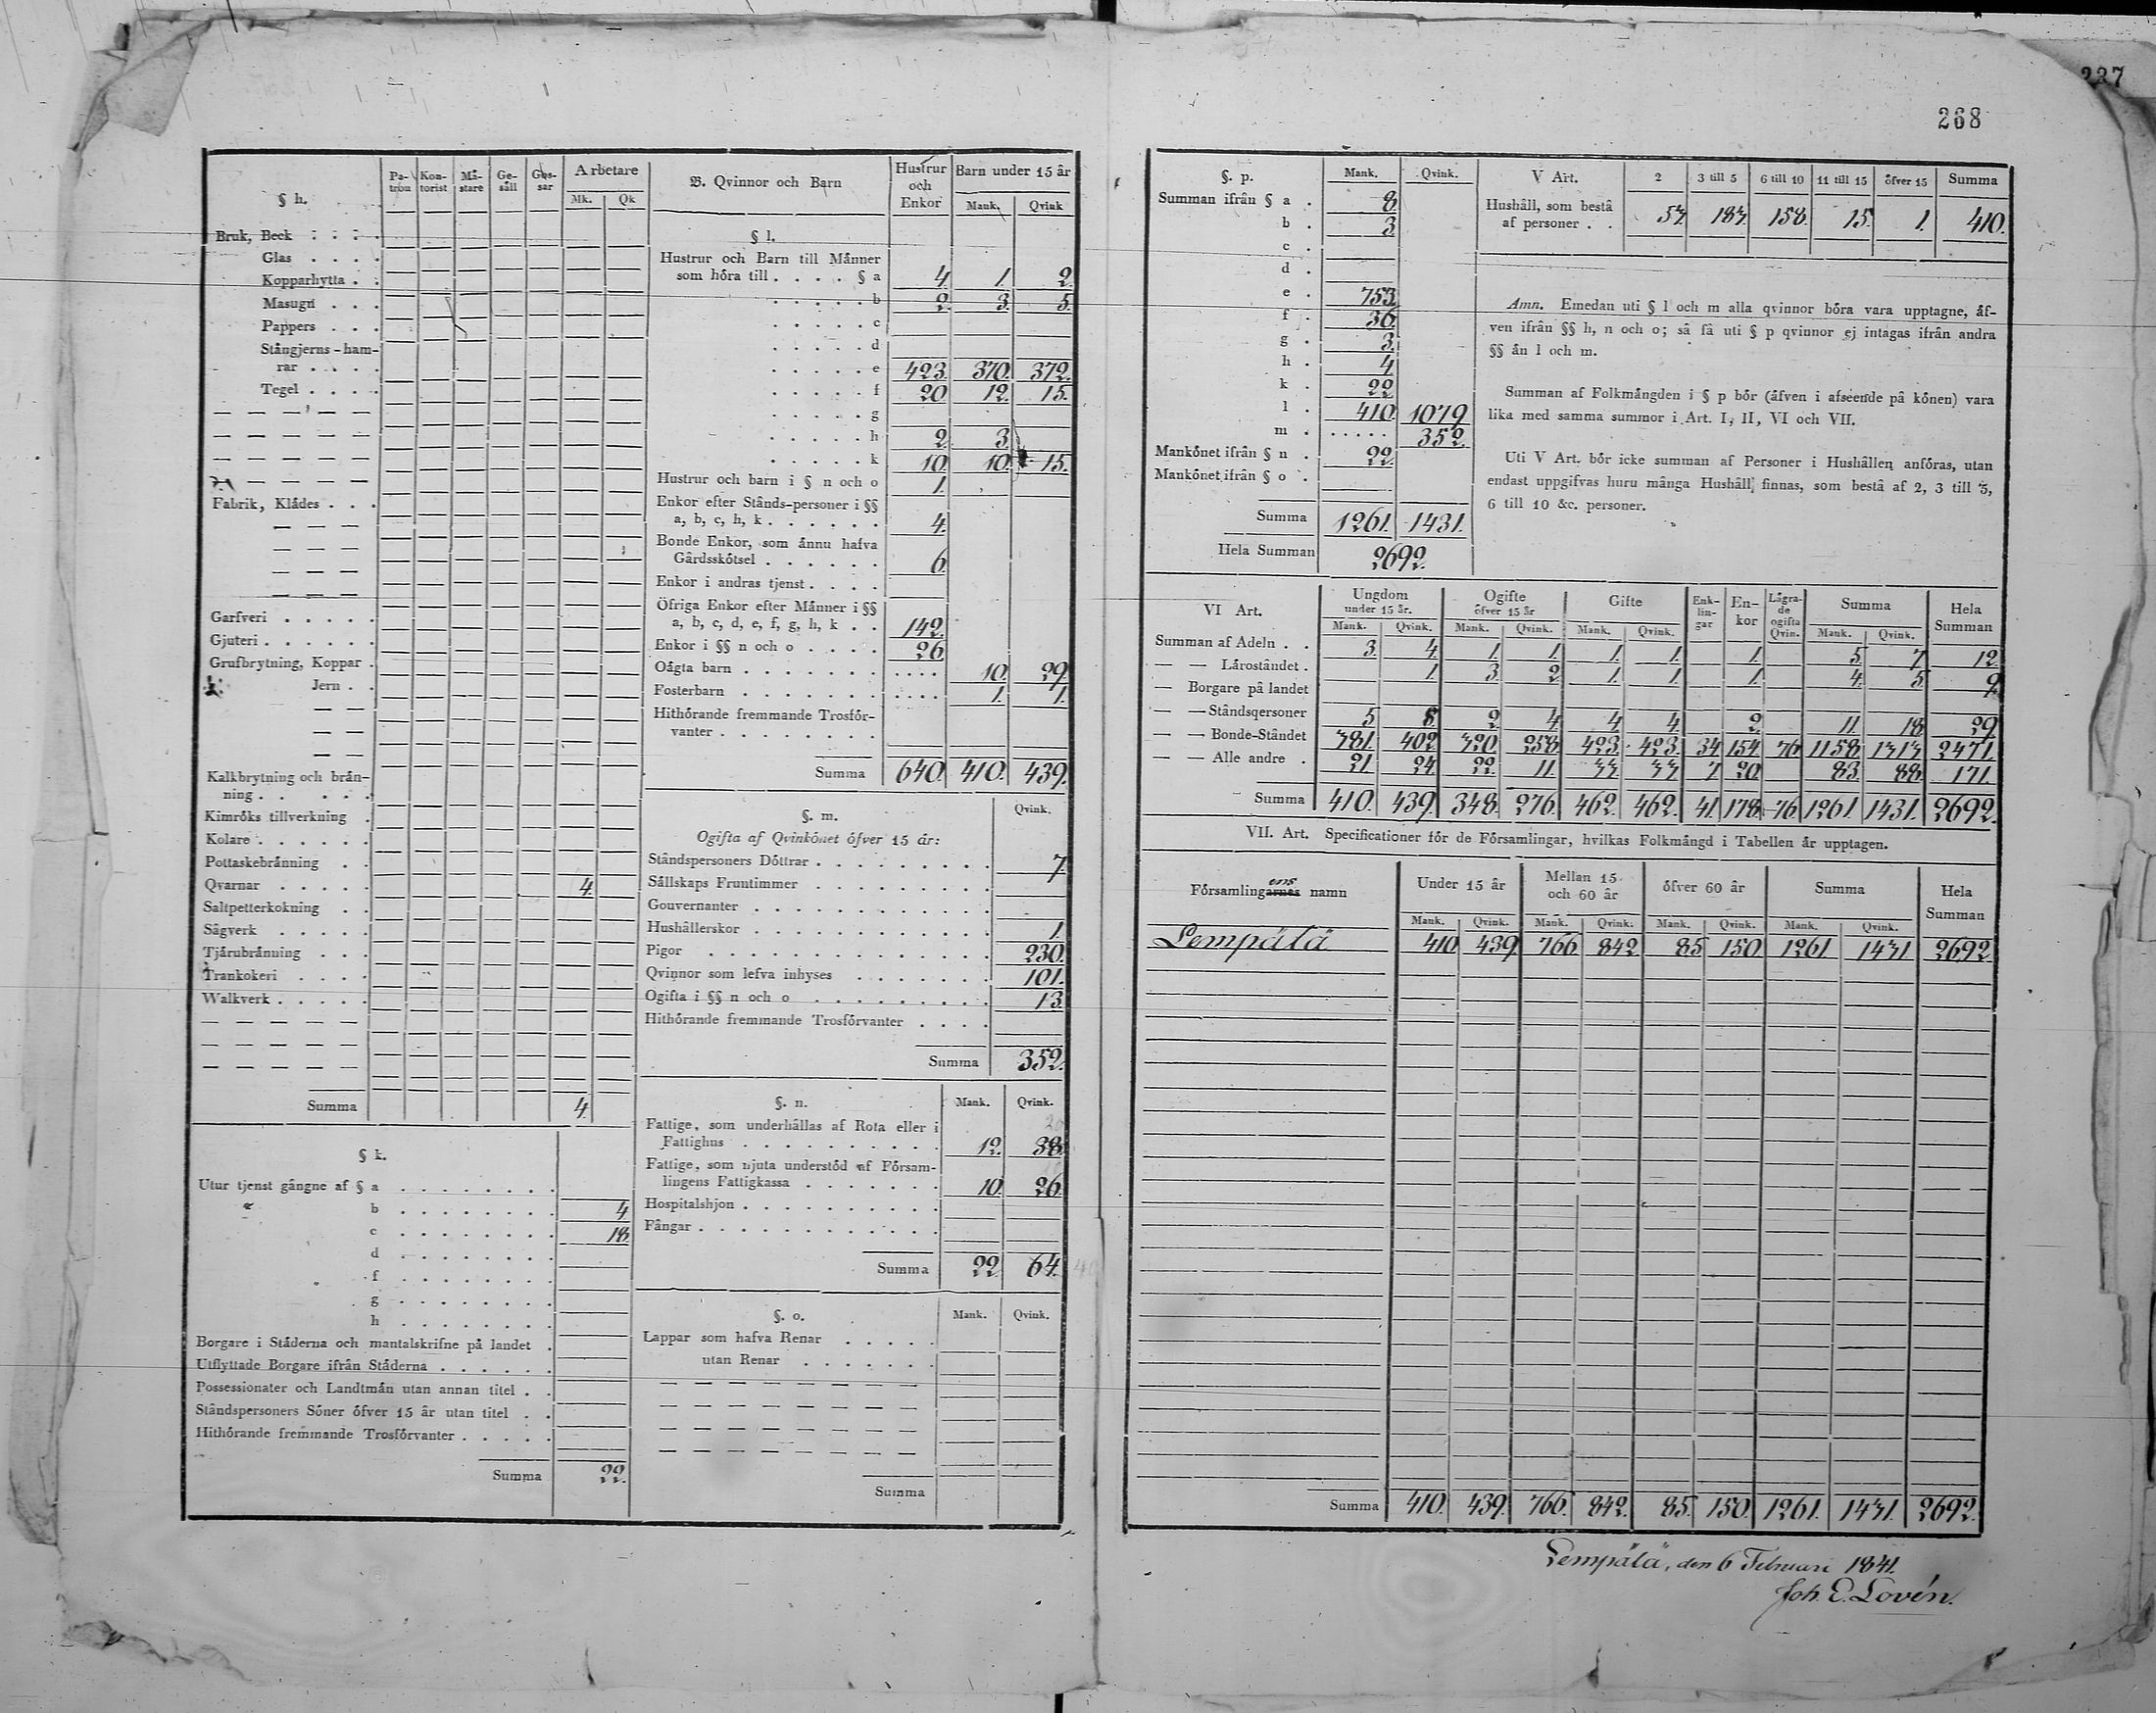 237
268
§ h.
Pa-tron Kon-torist Må-stare Ge-säll Gos-sar Arbetare
Mk. Qk
Bruk, Beck . . . .
Glas . . . .
Kopparhytta . .
Masugn . . .
Pappers . . .
Stångjerns-ham-
rar . . . .
Tegel . . . .
Fabrik, Klädes . . .
Garfveri . . . . .
Gjuteri . . . . . .
Grufbrytning, Koppar .
Jern . .
Kalkbrytning och brån-
ning . . . . . .
Kimröks tillverkning .
Kolare . . . . . .
Pottaskebränning . .
Qvarnar . . . . . 4.
Saltpetterkokning . .
Sågverk . . . . .
Tjärubränning . . .
Trankokeri . . . .
Walkverk . . . . .
Summa 4.
§ k.
Utur tjenst gångne af § a . . . . . . . .
b . . . . . . . . 4
c . . . . . . . . 18.
d . . . . . . . .
f . . . . . . . .
g . . . . . . . .
h . . . . . . . .
Borgare i Städerna och mantalskrifne på landet .
Utflyttade Borgare ifrån Städerna . . . . .
Possessionater och Landtmän utan annan titel . .
Ståndspersoners Söner öfver 15 år utan titel . .
Hithörande fremmande Trosförvanter . . . . .
Summa 22.
B. Qvinnor och Barn
Hustrur och Enkor Barn under 15 år
Mank. Qvink
§ l.
Hustrur och Barn till Männer
som höra till . . . . § a 4. 1. 2.
. . . . . b 2. 3. 5.
. . . . . c
. . . . . d
. . . . . e 423. 370. 372.
. . . . . f 20 12. 15.
. . . . . g
. . . . . h 2. 3.
. . . . . k 10. 10. 15.
Hustrur och barn i § n och o 1.
Enkor efter Stånds-personer i §§
a, b, c, h, k . . . . . . 4.
Bonde Enkor, som ännu hafva
Gårdsskötsel . . . . . . 6.
Enkor i andras tjenst . . . .
Öfriga Enkor efter Männer i §§
a, b, c, d, e, f, g, h, k . . 142.
Enkor i §§ n och o . . . . 26
Oägta barn . . . . . . . . . . . 10. 29.
Fosterbarn . . . . . . . . . . . 1. 1.
Hithörande fremmande Trosför-
vanter . . . . . . . .
Summa 640. 410. 439.
§. m.
Qvink.
Ogifta af Qvinkönet öfver 15 år:
Ståndspersoners Döttrar . . . . . . . . . 7.
Sällskaps Fruntimmer . . . . . . . . .
Gouvernanter . . . . . . . . . . . .
Hushållerskor . . . . . . . . . . . . 1.
Pigor . . . . . . . . . . . . . . 230.
Qvinnor som lefva inhyses . . . . . . . 101.
Ogifta i §§ n och o . . . . . . . . . 13.
Hithörande fremmande Trosförvanter . . . .
Summa 352.
§. n. Mank. Qvink.
Fattige, som underhållas af Rota eller i
Fattighus . . . . . . . . . 12. 38.
Fattige, som njuta understöd af Försam-
lingens Fattigkassa . . . . . . . 10. 26.
Hospitalshjon . . . . . . . . . .
Fångar . . . . . . . . . . . .
Summa 22 64.
§. o. Mank. Qvink.
Lappar som hafva Renar . . . . .
utan Renar . . . . . . .
Summa
§. p. Mank. Qvink.
Summan ifrån § a . 8.
b . 3.
c .
d .
e . 753.
f . 36.
g . 3.
h . 4
k . 22.
l . 410. 1079
m . . . . . . 352.
Mankönet ifrån § n . 22.
Mankönet ifrån § o .
Summa 1261. 1431.
Hela Summan 2692.
V Art. 2 3 till 5 6 till 10 11 till 15 öfver 15 Summa
Hushåll, som bestå
af personer . . 53. 183. 158. 15. 1. 410.
Amn. Emedan uti § l och m alla qvinnor böra vara upptagne, äf-
ven ifrån §§ h, n och o; så få uti § p qvinnor ej intagas ifrån andra
§§ än l och m.
Summan af Folkmängden i § p bör (äfven i afseende på könen) vara
lika med samma summor i Art. I, II, VI och VII.
Uti V Art. bör icke summan af Personer i Hushållen anföras, utan
endast uppgifvas huru många Hushåll finnas, som bestå af 2, 3 till 5,
6 till 10 &c. personer.
VI Art. Ungdom under 15 år. Ogifte öfver 15 år Gifte Enk-lin-gar En-kor Lägra-de ogifta Qvin. Summa Hela Summan
Mank. Qvink. Mank. Qvink. Mank. Qvink. Mank. Qvink.
Summan af Adeln . . 3. 4. 1. 1. 1. 1. 1. 5. 7. 12.
— — Läroståndet . 1. 3. 2. 1. 1. 1. 4. 5. 9.
— Borgare på landet
— — Ståndspersoner 5 8. 2. 4. 4. 4. 2. 11. 18. 29.
— — Bonde-Ståndet 381. 402. 320. 258. 423. 423. 34 154. 76. 1158. 1313. 2471.
— — Alle andre . 21. 24. 22. 11. 33. 33. 7. 20. 83. 88. 171.
Summa 410. 439. 348. 276. 462. 462. 41. 178. 76. 1261. 1431. 2692.
VII. Art. Specificationer för de Församlingar, hvilkas Folkmängd i Tabellen är upptagen.
ens
Församlingarnes namn Under 15 år Mellan 15 och 60 år öfver 60 år Summa Hela Summan
Mank. Qvink. Mank. Qvink. Mank. Qvink. Mank. Qvink.
Lempälä 410 439. 766. 842. 85. 150. 1261. 1431 2692.
Summa 410. 439. 766. 842. 85. 150. 1261. 1431. 2692.
Lempälä, den 6 Februari 1841.
Joh. E. Lovén.